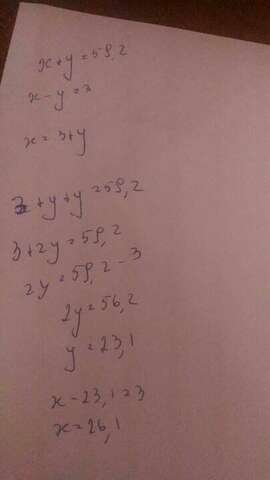 x+y=59,2
x-y=3
x=3+y
3+y+y=59,2
3+2y=59,2
2y=59,2-3
2y=56,2
y=23,1
x-23,1=3
x=26,1